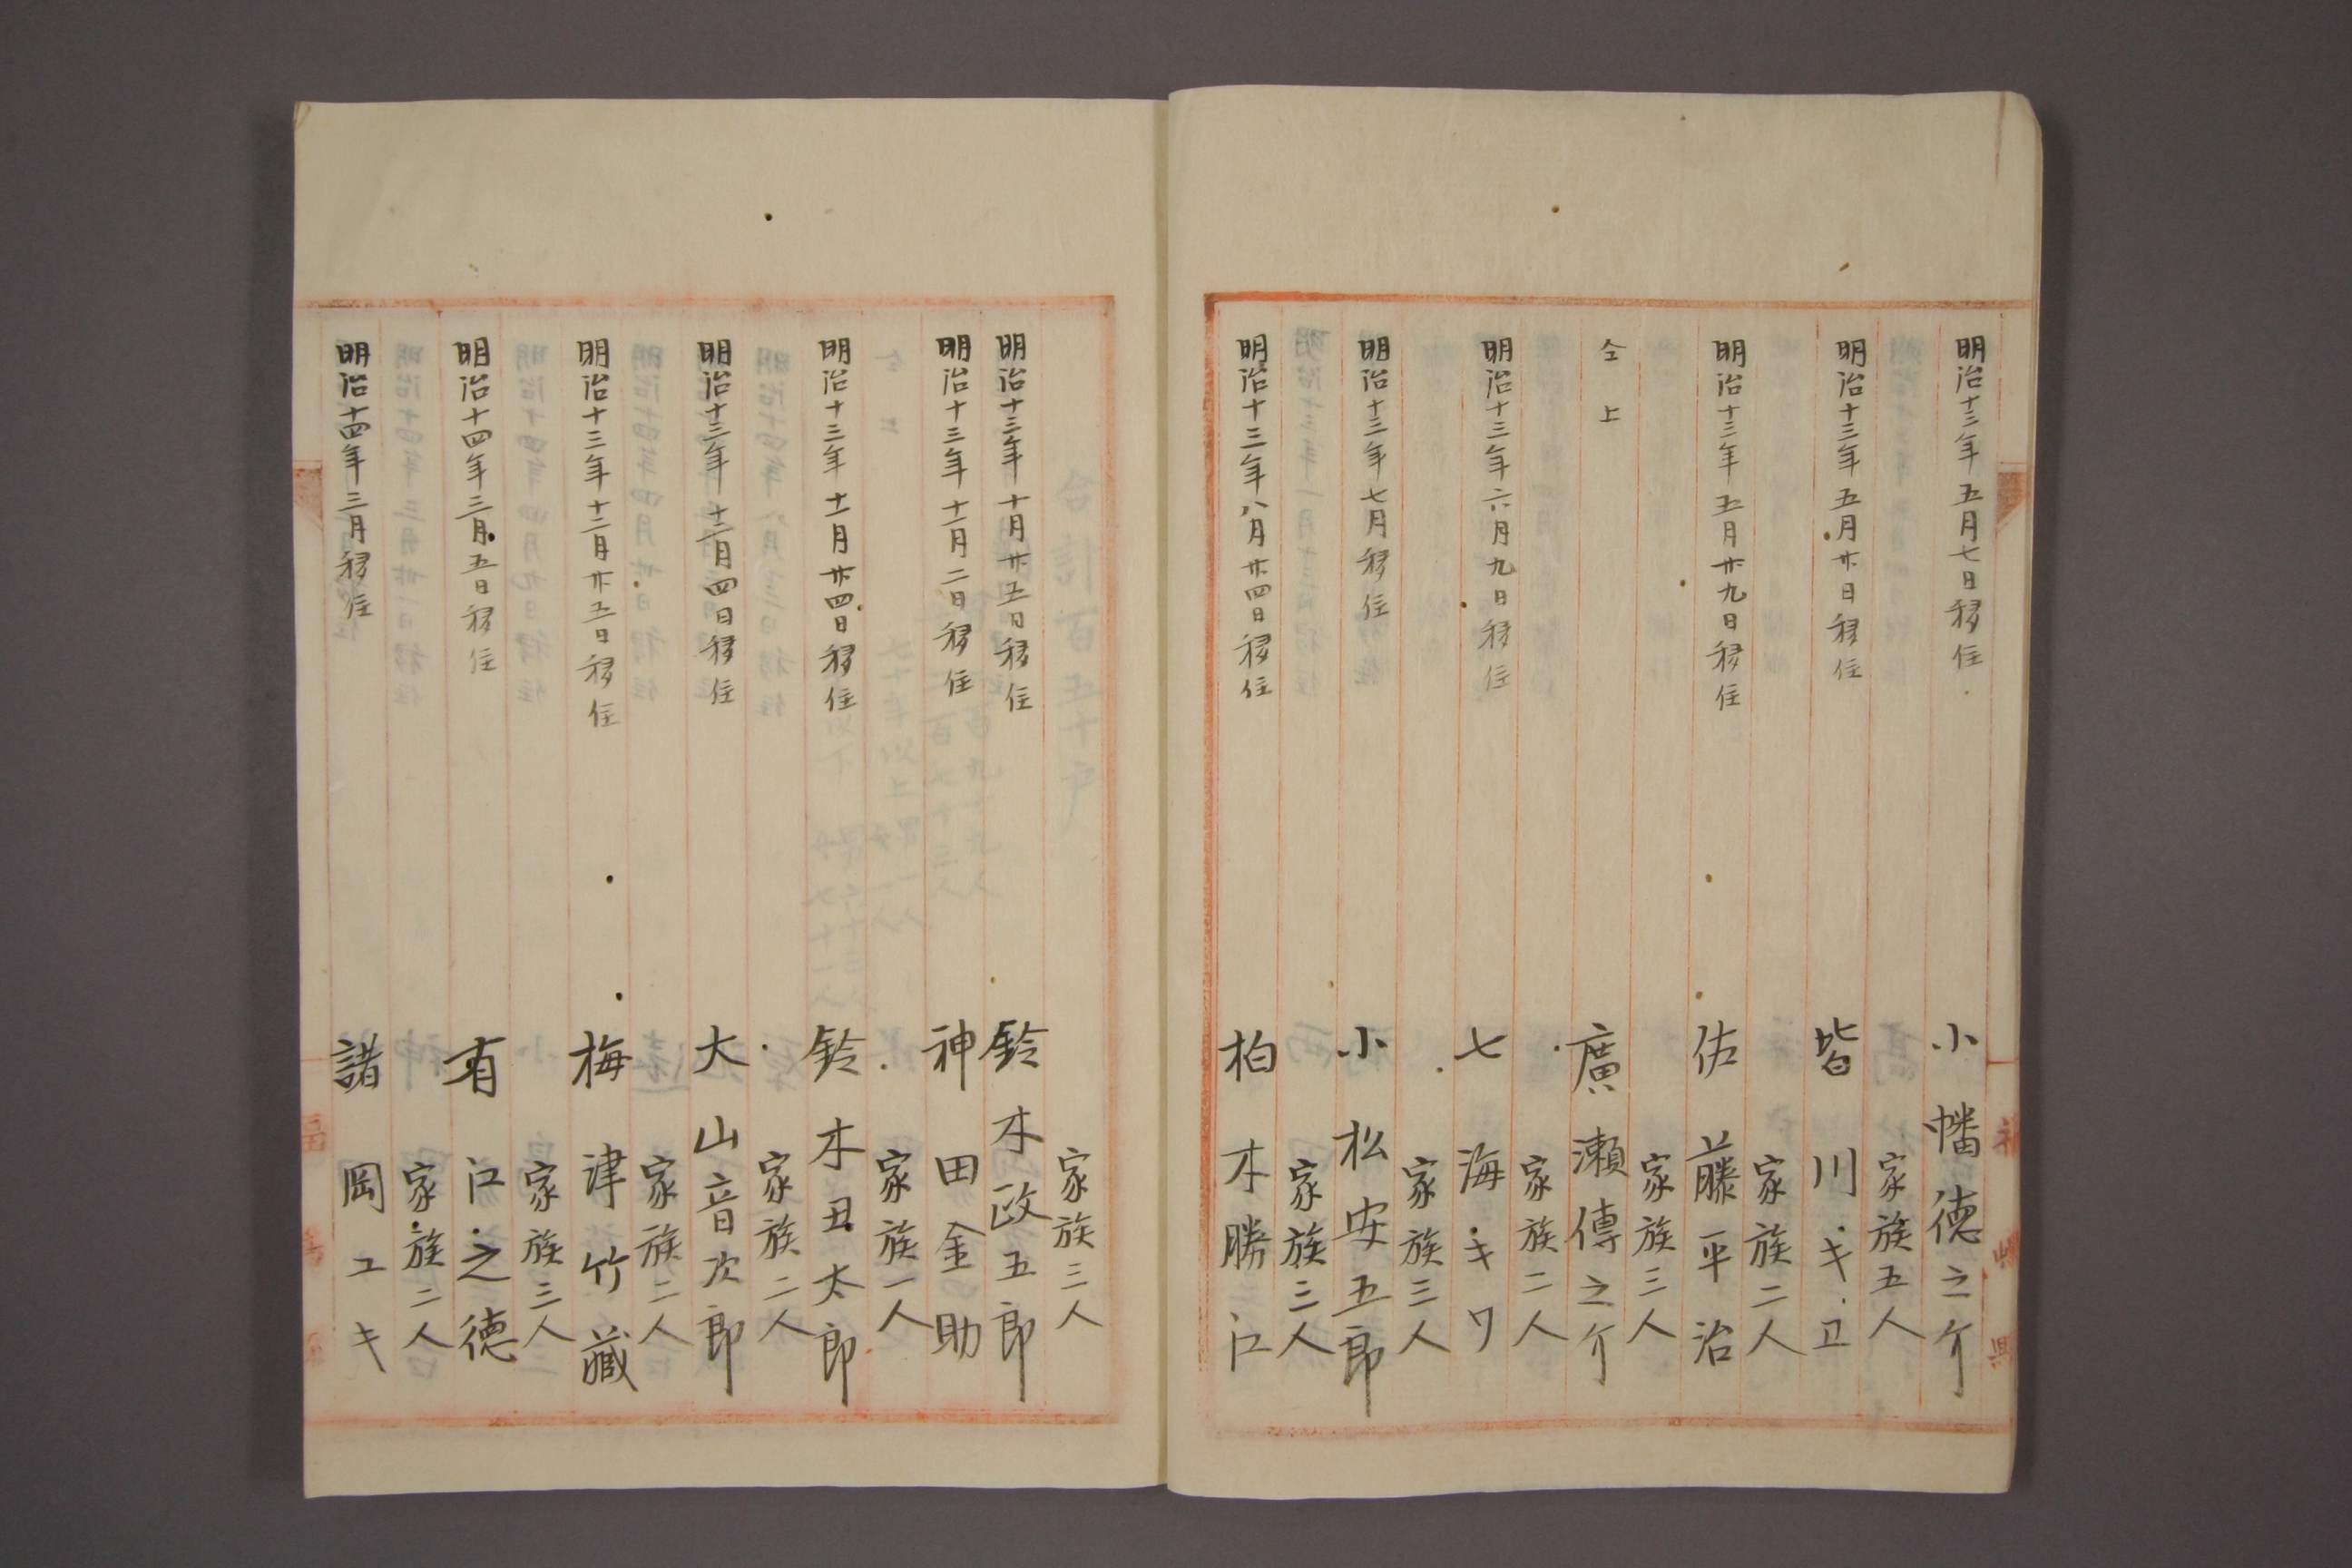 明治十三年五月七日移住 小幡徳之介
家族五人
明治十三年五月廿日移住 皆川キヱ
家族二人
明治十三年五月廿九日移住 佐藤平治
家族三人
仝上 廣瀬傳之介
家族二人
明治十三年六月九日移住 七海キワ
家族三人
明治十三年七月移住 小松安五郎
家族三人
明治十三年八月廿四日移住 柏木勝江
家族三人
明治十三年十月廿五日移住 鈴木政五郎
明治十三年十一月二日移住 神田金助
家族一人
明治十三年十一月廿四日移住 鈴木丑太郎
家族二人
明治十三年十二月四日移住 大山音次郎
家族二人
明治十三年十二月廿五日移住 梅津竹藏
家族三人
明治十四年三月五日移住 有江之徳
家族二人
明治十四年三月移住 諸岡ユキ